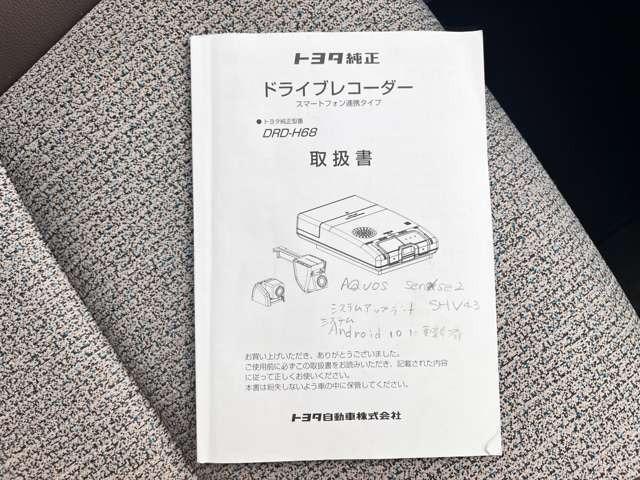 トヨタ純正
ドライブレコーダー
スマートフォン連携タイプ
● トヨタ純正型番
DRD-H68
取扱書
AQUOS sense2
システムアップデート SHV43
システム
Android 10に更新済
お買い上げいただき、ありがとうございました。
ご使用前に必ずこの取扱書をお読みいただき、記載された内容
に従って正しくお使いください。
本書は紛失しないよう車の中に保管してください。
トヨタ自動車株式会社